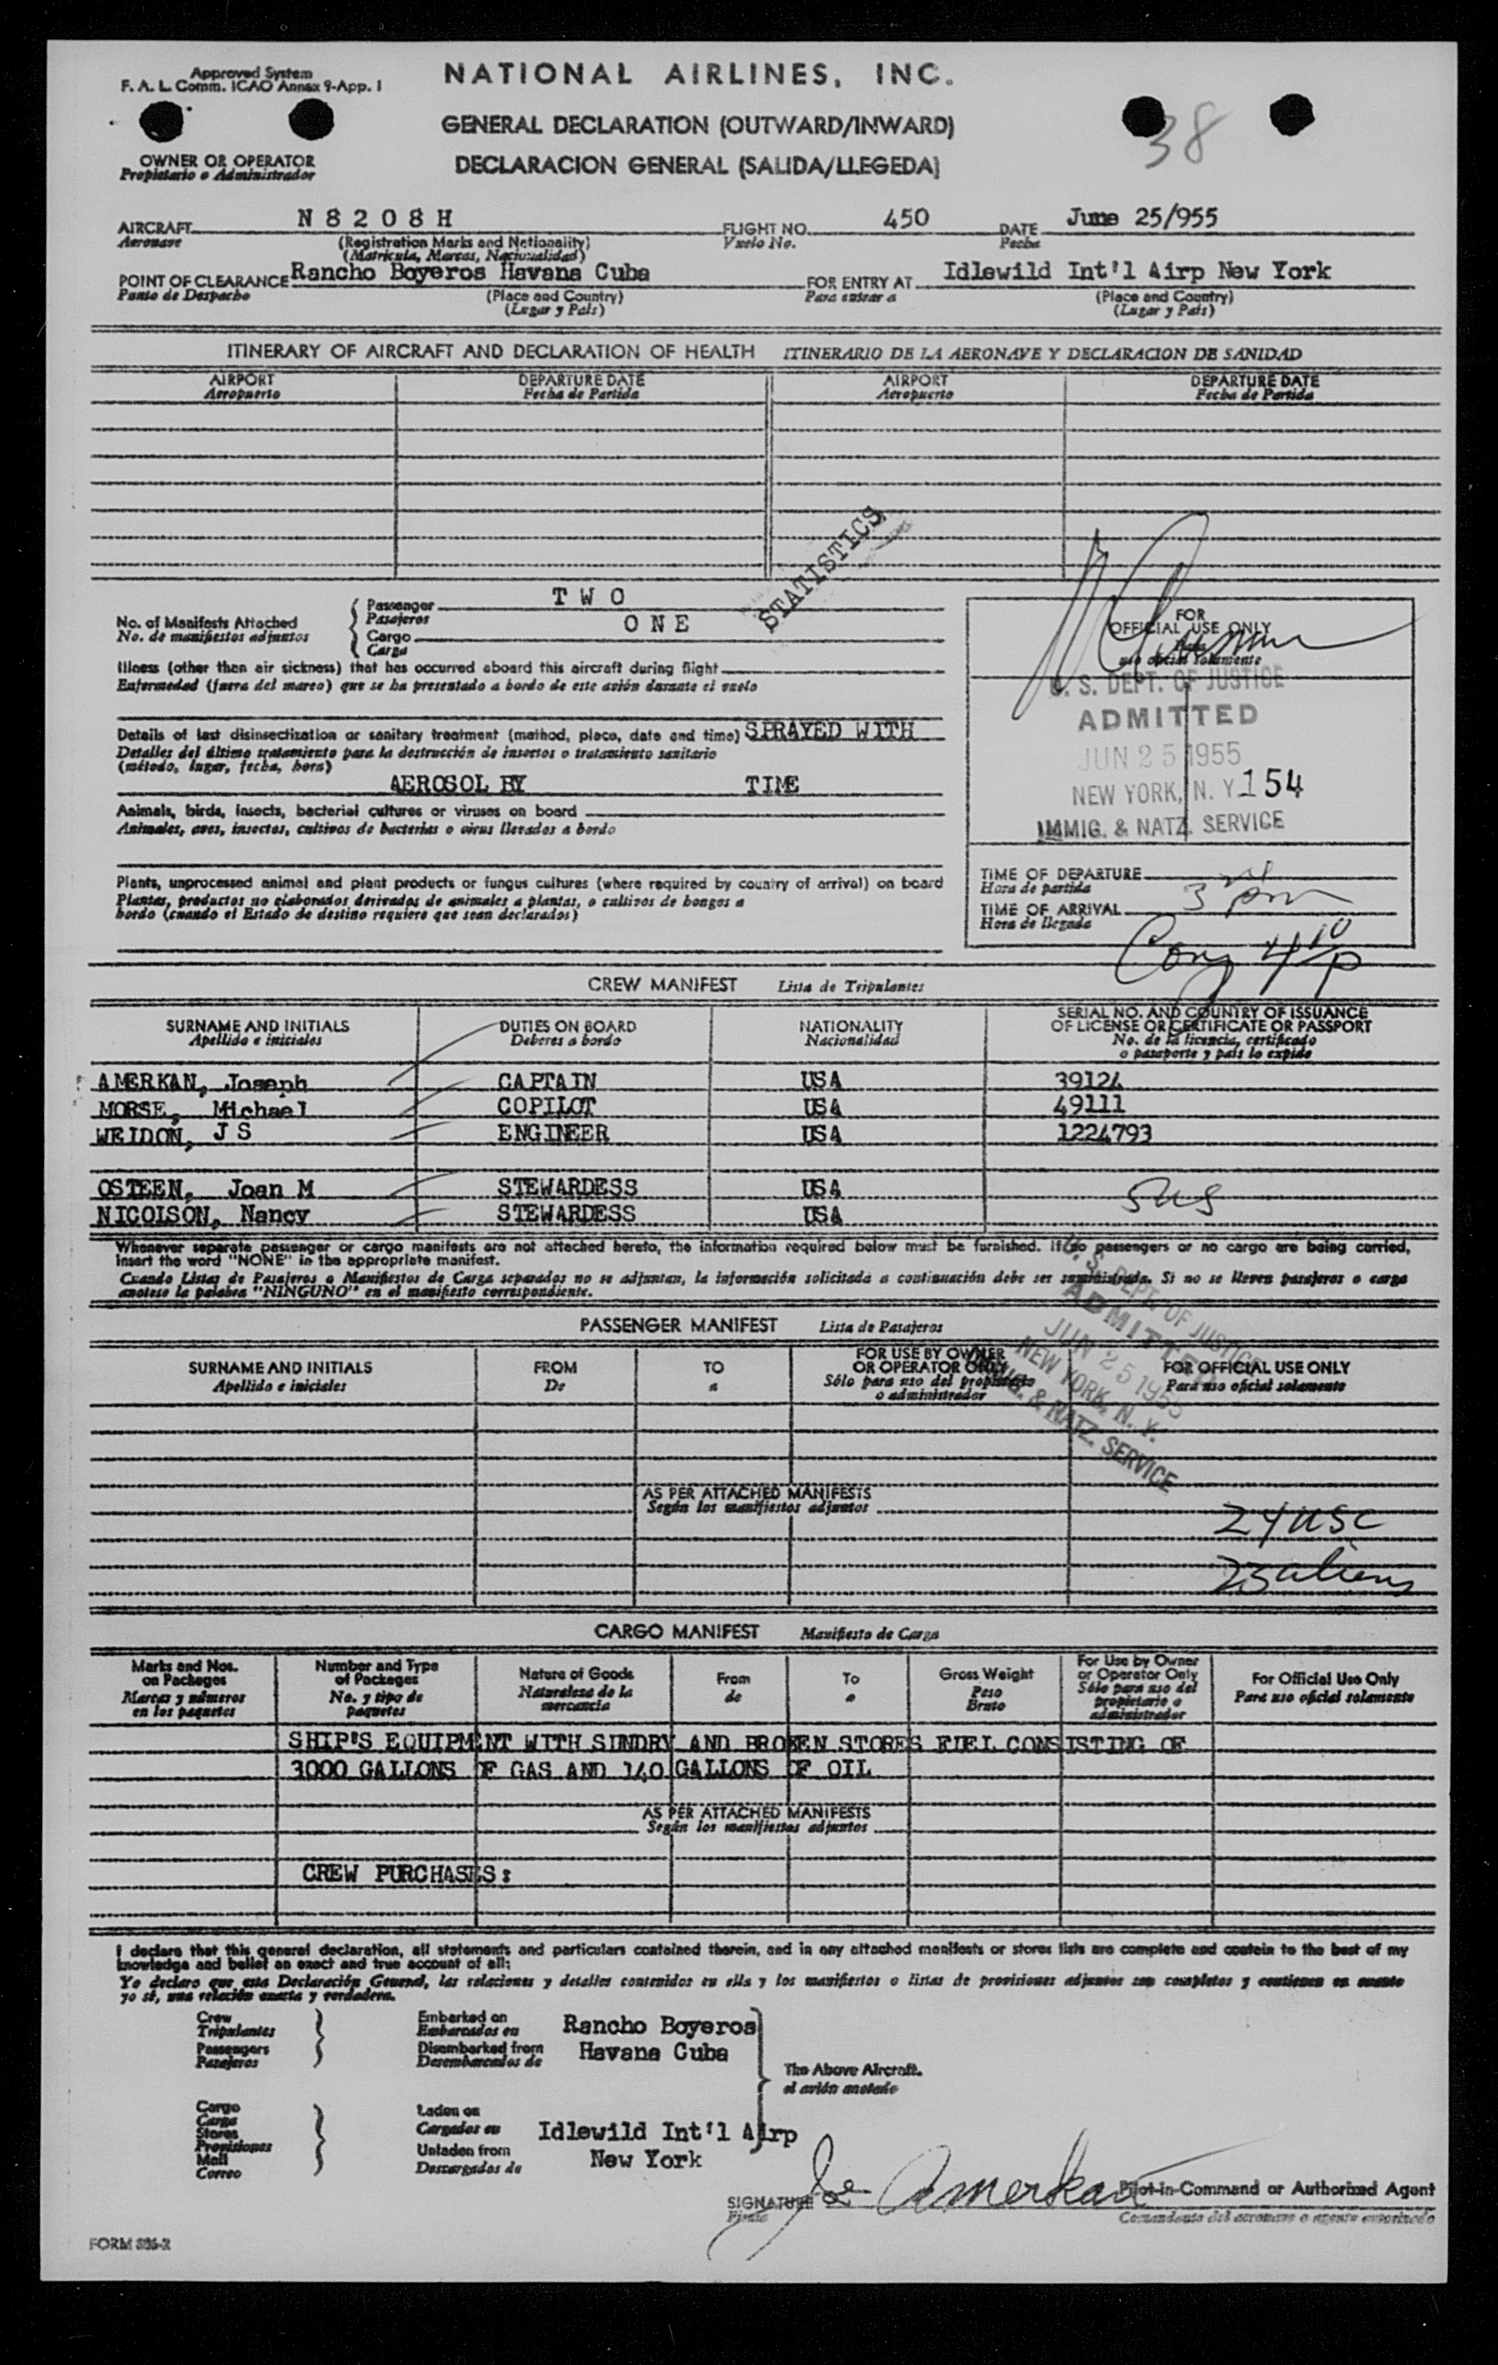 Approved System
F. A. L. Comm. ICAO Annex 9-App. 1
NATIONAL AIRLINES, INC.
GENERAL DECLARATION (OUTWARD/INWARD)
DECLARACION GENERAL (SALIDA/LLEGEDA)
38
OWNER OR OPERATOR
Propietario o Administrador
AIRCRAFT N 8 2 0 8 H FLIGHT NO. 450 DATE June 25/955
Aeronave (Registration Marks and Nationality) Vuelo No. Fecha
(Matricula, Marcas, Nacionalidad)
POINT OF CLEARANCE Rancho Boyeros Havana Cuba FOR ENTRY AT Idlewild Int'l Airp New York
Punto de Despacho (Place and Country) Para entrar a (Place and Country)
(Lugar y País) (Lugar y País)
ITINERARY OF AIRCRAFT AND DECLARATION OF HEALTH ITINERARIO DE LA AERONAVE Y DECLARACION DE SANIDAD
AIRPORT DEPARTURE DATE AIRPORT DEPARTURE DATE
Aeropuerto Fecha de Partida Aeropuerto Fecha de Partida
STATISTICS
No. of Manifests Attached
No. de manifiestos adjuntos
Passenger T W O
Pasajeros
Cargo O N E
Carga
Illness (other than air sickness) that has occurred aboard this aircraft during flight
Enfermedad (fuera del mareo) que se ha presentado a bordo de este avión durante el vuelo
Details of last disinsectization or sanitary treatment (method, place, date and time) SPRAYED WITH
Detalles del último tratamiento para la destrucción de insectos o tratamiento sanitario
(método, lugar, fecha, hora)
AEROSOL BY TIME
Animals, birds, insects, bacterial cultures or viruses on board
Animales, aves, insectos, cultivos de bacterias o virus llevados a bordo
Plants, unprocessed animal and plant products or fungus cultures (where required by country of arrival) on board
Plantas, productos no elaborados derivados de animales a plantas, o cultivos de hongos a
bordo (cuando el Estado de destino requiere que sean declarados)
FOR
OFFICIAL USE ONLY
Para
uso oficial solamente
U. S. DEPT. OF JUSTICE
ADMITTED
JUN 25 1955
NEW YORK, N. Y. 154
IMMIG. & NATZ. SERVICE
TIME OF DEPARTURE
Hora de partida
TIME OF ARRIVAL 3 pm
Hora de llegada
4 10 p
CREW MANIFEST Lista de Tripulantes
SURNAME AND INITIALS DUTIES ON BOARD NATIONALITY SERIAL NO. AND COUNTRY OF ISSUANCE
Apellido e iniciales Deberes a bordo Nacionalidad OF LICENSE OR CERTIFICATE OR PASSPORT
No. de la licencia, certificado
o pasaporte y país lo expide
AMERKAN, Joseph CAPTAIN USA 39124
MORSE, Michael COPILOT USA 49111
WEIDON, J S ENGINEER USA 1224793
OSTEEN, Joan M STEWARDESS USA
NICOLSON, Nancy STEWARDESS USA
Whenever separate passenger or cargo manifests are not attached hereto, the information required below must be furnished. If no passengers or no cargo are being carried,
insert the word "NONE" in the appropriate manifest.
Cuando Listas de Pasajeros o Manifiestos de Carga separados no se adjuntan, la información solicitada a continuación debe ser suministrada. Si no se lleven pasajeros o carga
anótese la palabra "NINGUNO" en el manifiesto correspondiente.
U. S. DEPT. OF JUSTICE
ADMITTED
JUN 25 1955
NEW YORK, N. Y.
IMMIG. & NATZ. SERVICE
PASSENGER MANIFEST Lista de Pasajeros
SURNAME AND INITIALS FROM TO FOR USE BY OWNER OR OPERATOR ONLY FOR OFFICIAL USE ONLY
Apellido e iniciales De a Sólo para uso del propietario o administrador Para uso oficial solamente
AS PER ATTACHED MANIFESTS
Según los manifiestos adjuntos
24 USC
23 aliens
CARGO MANIFEST Manifiesto de Carga
Marks and Nos. on Packages Number and Type of Packages Nature of Goods From To Gross Weight For Use by Owner or Operator Only For Official Use Only
Marcas y números en los paquetes No. y tipo de paquetes Naturaleza de la mercancía de a Peso Bruto Sólo para uso del propietario o administrador Para uso oficial solamente
SHIP'S EQUIPMENT WITH SUNDRY AND BROKEN STORES FUEL CONSISTING OF
3000 GALLONS OF GAS AND 140 GALLONS OF OIL
AS PER ATTACHED MANIFESTS
Según los manifiestos adjuntos
CREW PURCHASES:
I declare that this general declaration, all statements and particulars contained therein, and in any attached manifests or stores lists are complete and contain to the best of my
knowledge and belief an exact and true account of all:
Yo declaro que esta Declaración General, las relaciones y detalles contenidos en ella y los manifiestos o listas de provisiones adjuntos son completos y contienen en cuanto
yo sé, una relación exacta y verdadera.
Crew Embarked on Rancho Boyeros
Tripulantes Embarcados en
Passengers Disembarked from Havana Cuba
Pasajeros Desembarcados de
The Above Aircraft.
el avión anotado
Cargo Laden on
Carga Cargados en Idlewild Int'l Airp
Stores
Provisiones Unladen from New York
Mail Descargados de
Correo
SIGNATURE Joe Amerkan Pilot-in-Command or Authorized Agent
Firma Comandante del aeronave o agente autorizado
FORM 386-2